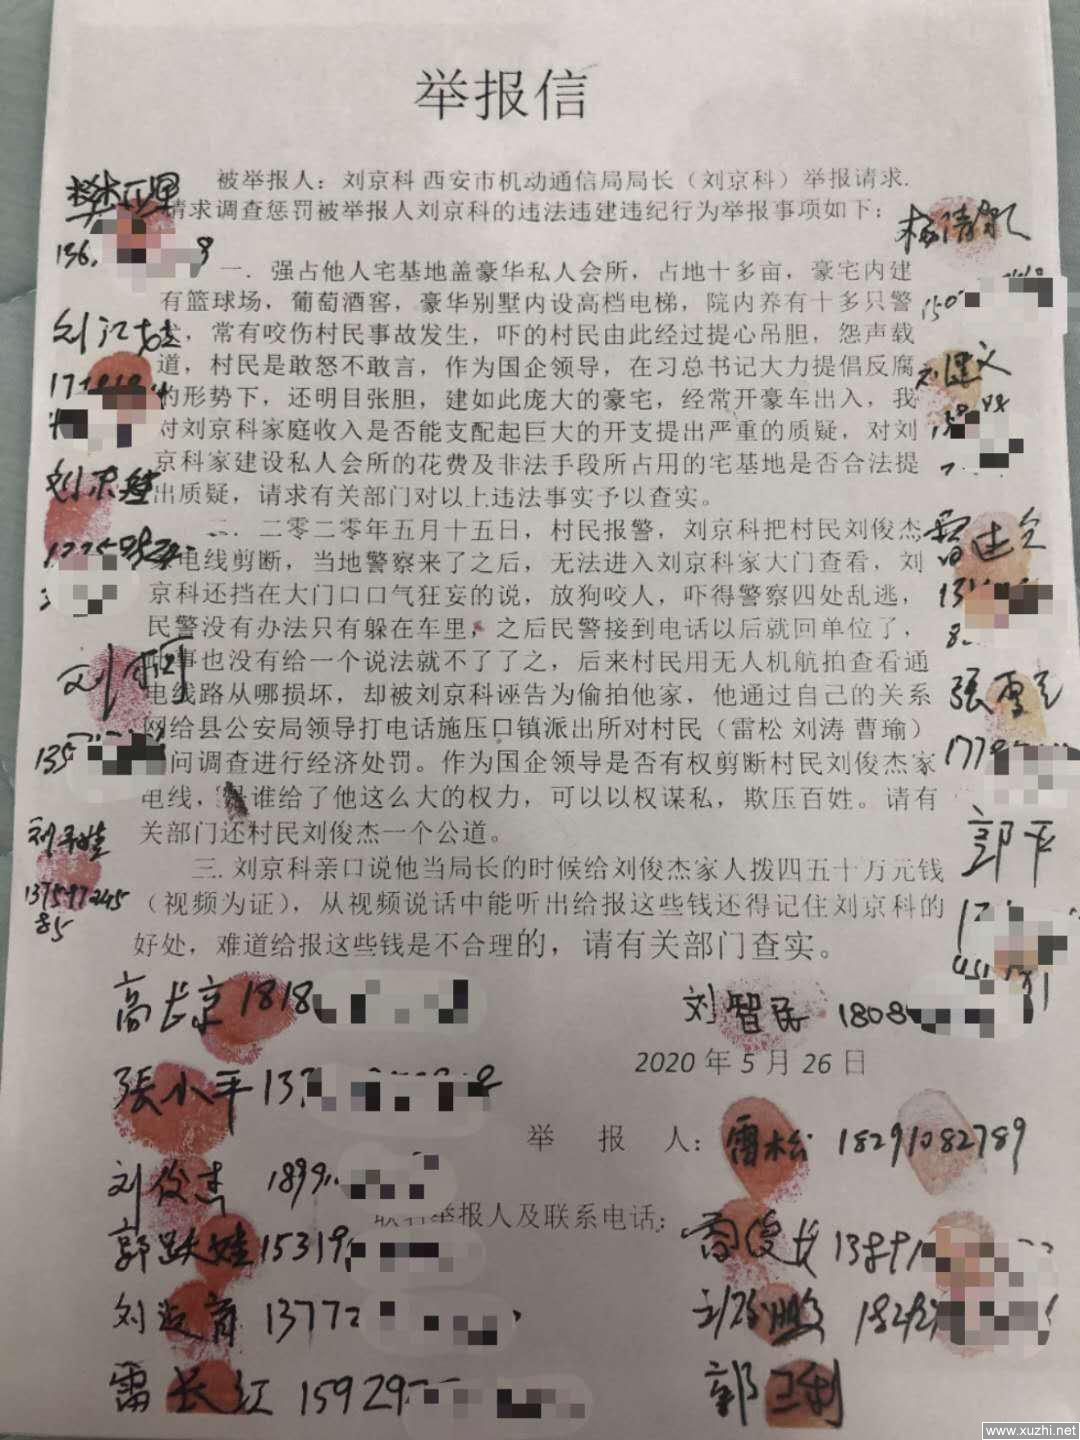 举报信
被举报人：刘京科 西安市机动通信局局长（刘京科）举报请求.
请求调查惩罚被举报人刘京科的违法违建违纪行为举报事项如下：
一．强占他人宅基地盖豪华私人会所，占地十多亩，豪宅内建
有篮球场，葡萄酒窖，豪华别墅内设高档电梯，院内养有十多只警
，常有咬伤村民事故发生，吓的村民由此经过提心吊胆，怨声载
道，村民是敢怒不敢言，作为国企领导，在习总书记大力提倡反腐
的形势下，还明目张胆，建如此庞大的豪宅，经常开豪车出入，我
对刘京科家庭收入是否能支配起巨大的开支提出严重的质疑，对刘
京科家建设私人会所的花费及非法手段所占用的宅基地是否合法提
出质疑，请求有关部门对以上违法事实予以查实。
二．二零二零年五月十五日，村民报警，刘京科把村民刘俊杰
电线剪断，当地警察来了之后，无法进入刘京科家大门查看，刘
京科还挡在大门口口气狂妄的说，放狗咬人，吓得警察四处乱逃，
民警没有办法只有躲在车里，之后民警接到电话以后就回单位了，
事也没有给一个说法就不了了之，后来村民用无人机航拍查看通
电线路从哪损坏，却被刘京科诬告为偷拍他家，他通过自己的关系
网给县公安局领导打电话施压口镇派出所对村民（雷松 刘涛 曹瑜）
问调查进行经济处罚。作为国企领导是否有权剪断村民刘俊杰家
电线，是谁给了他这么大的权力，可以以权谋私，欺压百姓。请有
关部门还村民刘俊杰一个公道。
三．刘京科亲口说他当局长的时候给刘俊杰家人拨四五十万元钱
（视频为证），从视频说话中能听出给报这些钱还得记住刘京科的
好处，难道给报这些钱是不合理的，请有关部门查实。
刘江娃
刘平娃
137597245
85
刘建文
雷建全
郭平
高长京 1818
刘智民 1808
2020 年 5 月 26 日
张小平 137
举 报 人：雷松 18291082789
刘俊杰 1899
举报人及联系电话：
郭跃娃 15319
1389
13772
刘鹏 18292
雷长江 15929
郭卫利
www.xuzhi.net